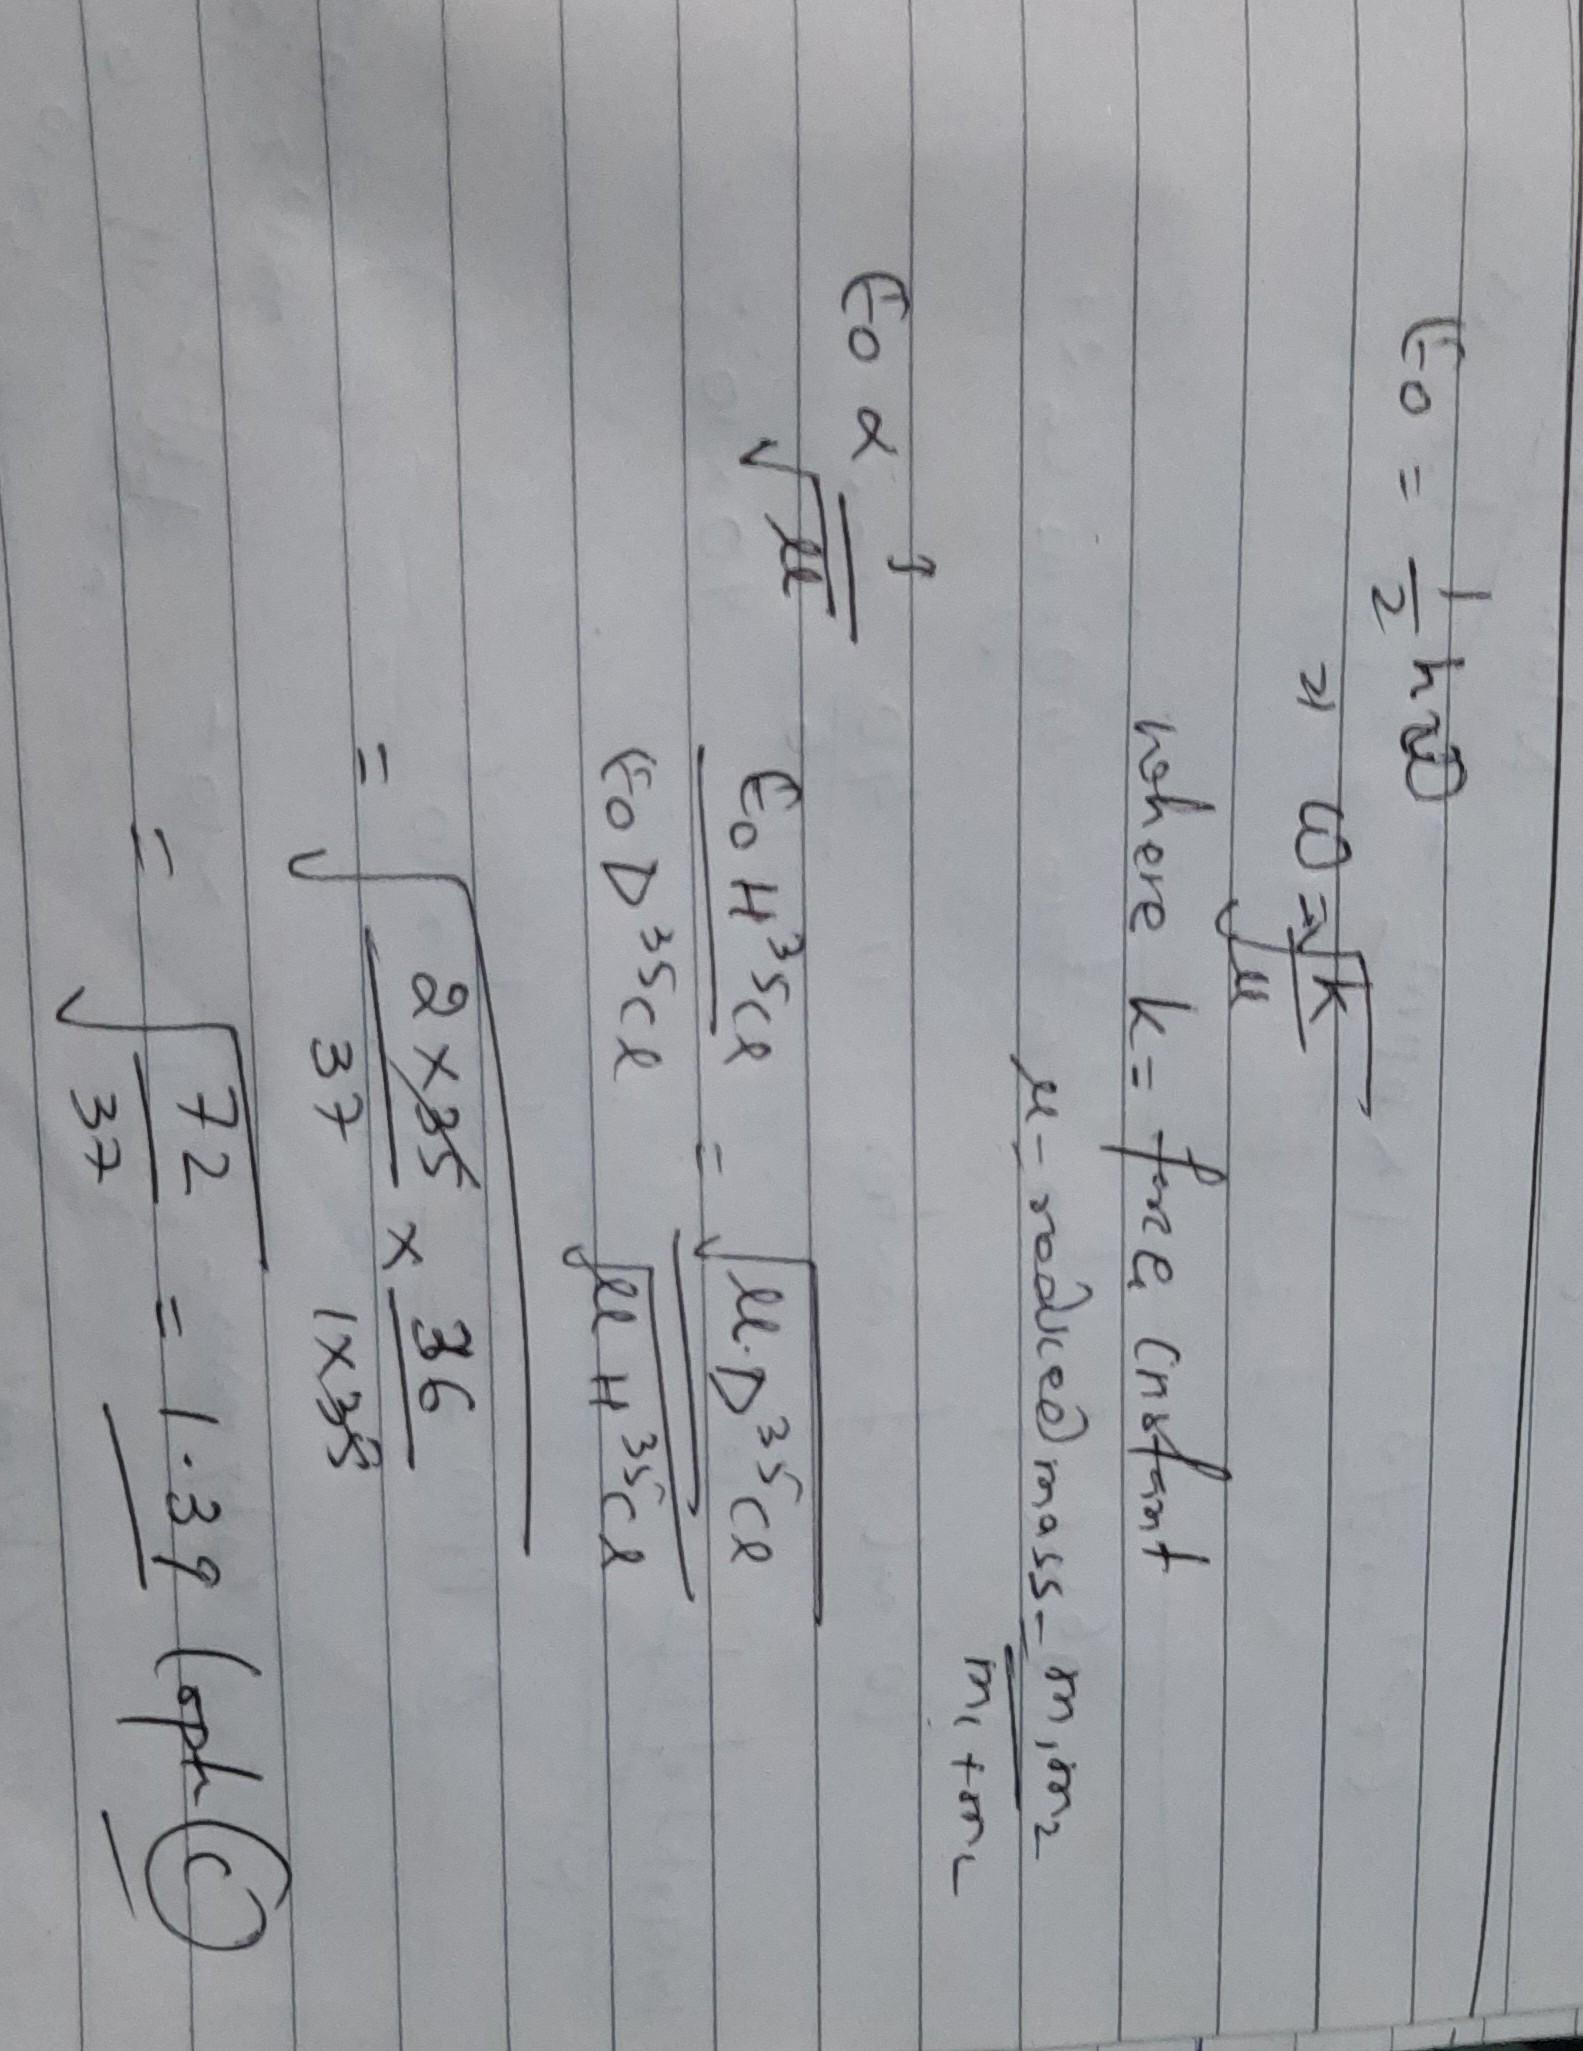 E₀ = 1/2 hω
" ω = √k/√μ
where k = force constant
μ - reduced mass - m₁m₂/m₁+m₂
E₀ α 1/√μ
E₀ H³⁵Cl / E₀ D³⁵Cl = √μ D³⁵Cl / √μ H³⁵Cl
= √(2×35/37 × 36/1×35)
= √(72/37) = 1.39 (opt C)